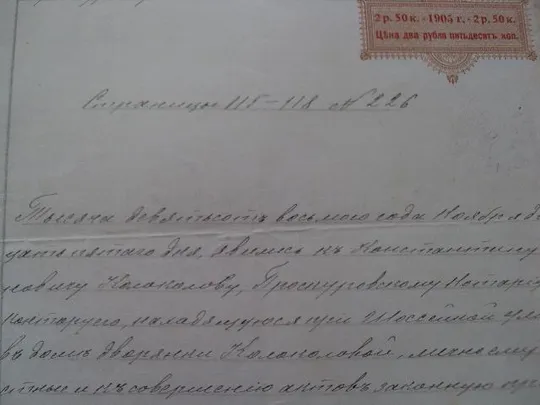 2 р. 50 к. - 1905 г. - 2 р. 50 к.
Цѣна два рубля пятьдесятъ коп.
Страницы 115-118 № 226
Тысяча девятьсотъ восьмого года Ноября два
цать пятаго дня, явились къ Константину
новичу Колоколову, Проскуровскому Нотарі
контору его, находящуюся при Шоссейной ули
въ домѣ дворянки Колоколовой, лично ему
стные и къ совершенію актовъ законную пр